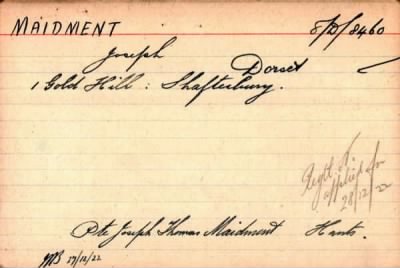 MAIDMENT 8/D/8460
Joseph
Dorset
1 Gold Hill : Shaftesbury.
Regtl N.
applied for
28/12/22
Pte Joseph Thomas Maidment Hants.
17/12/22